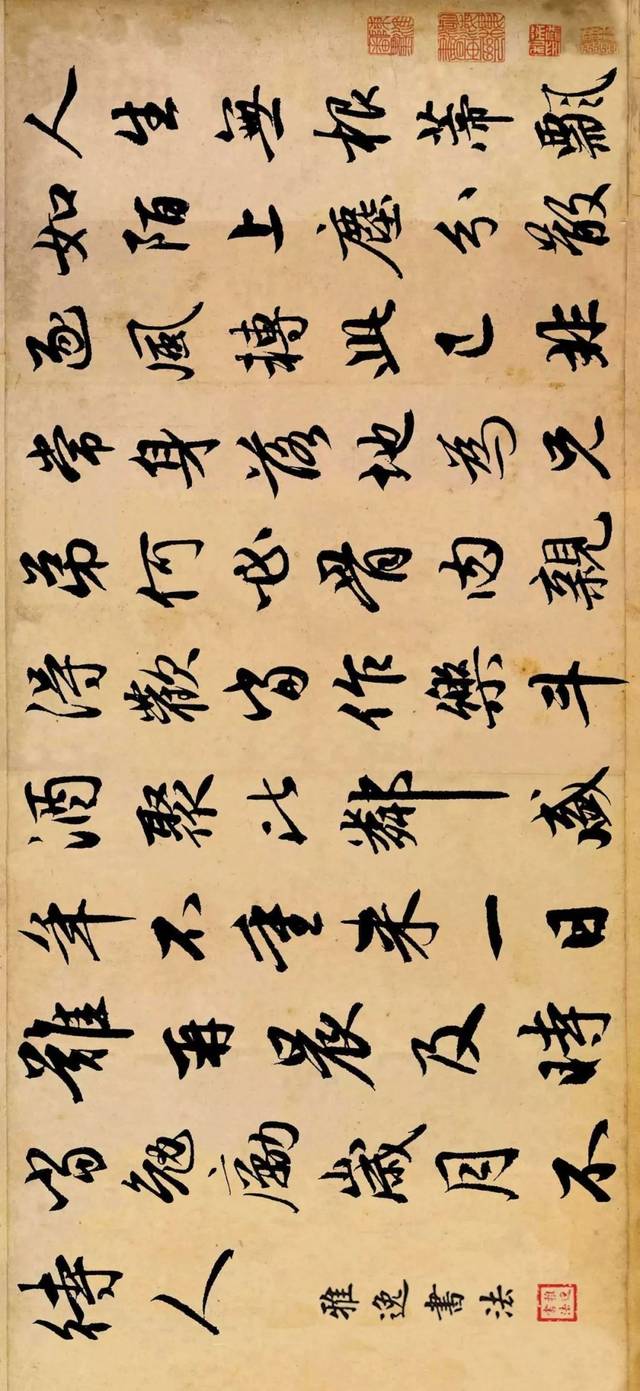 人生無根蒂飄
如陌上塵分散
逐風轉此已非
常身落地為兄
弟何必骨肉親
得歡當作樂斗
酒聚比鄰盛
年不重來一日
難再晨及時
當勉勵歲月不
待人
雅逸書法